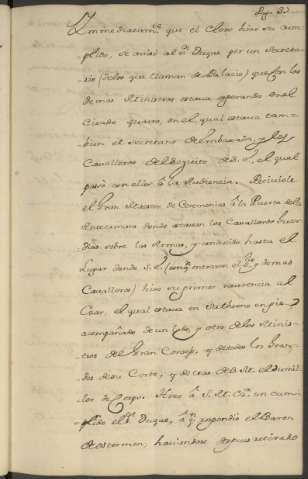 Pag. 8.
Immediatam.te que el Clero hizo su cum-
plido, se avisó al S.r Duque por un Secreta-
rio (de los que llaman de Palacio) que con los
demas Ministros estava esperando en el
citado quarto, en el qual estava tam-
bien el Secretario de Embaxada, y los
Cavalleros del Sequito de S. E. el qual
pasó con ellos á la Audiencia. Reciviole
el Gran Maestro de Ceremonias á la Puerta de la
Antecamara donde estavan los Cavalleros
sobre las Armas, y conducido hasta el
Lugar donde S. E. entraron
Cavalleros) hizo su primer reverencia al
Czar, el qual estava en su throno en pie
acompañado de un lado, y otro de los Minis-
tros del Gran Consejo, y de todos los Gran-
des de su Corte, y detras de S. M. el
de Corps. Hizo á S. M. Cz. un cum-
plido el S.r Duque, á q.e respondió el Baron
de Osterman, haviendose despues retirado